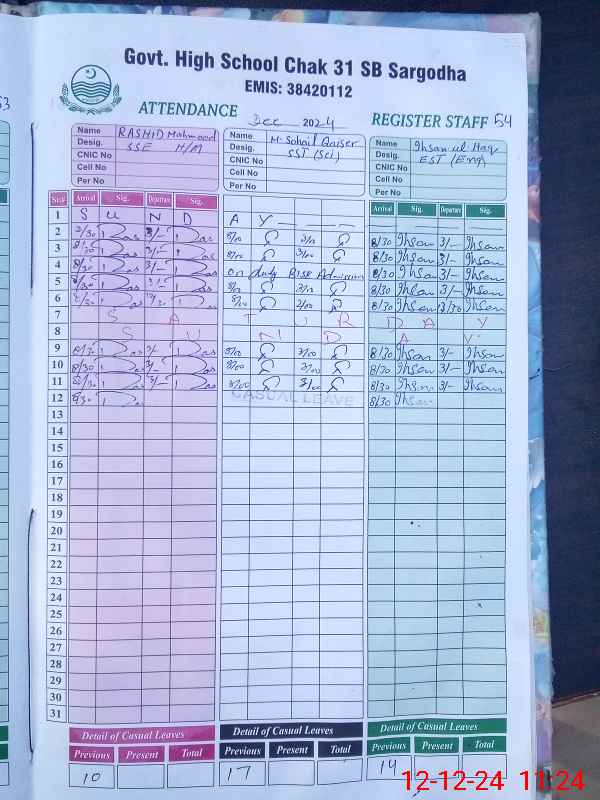 Govt. High School Chak 31 SB Sargodha
EMIS: 38420112
ATTENDANCE Dec 2024 REGISTER STAFF 54
53
Name RASHID Mahmood
Desig. SSE H/M
CNIC No
Cell No
Per No
Name M. Sohail Qaiser
Desig. SST (Sci)
CNIC No
Cell No
Per No
Name Ihsan ul Haq
Desig. EST (Eng)
CNIC No
Cell No
Per No
Sr.# Arrival Sig. Departure Sig. Arrival Sig. Departure Sig.
1 S U N D A Y
2 8/00 8/30 Ihsan 3/- Ihsan
3 8/30 8/00 3/00 8/30 Ihsan 3/- Ihsan
4 8/30 3/- on duty Bise Admission 8/30 Ihsan 3/- Ihsan
5 8/30 3/- 8/00 8/30 Ihsan 3/- Ihsan
6 8/00 8/30 Ihsan 12/30 Ihsan
7 S A T U R D A Y
8 S U N D A Y
9 8/30 3/- 8/00 8/30 Ihsan 3/- Ihsan
10 8/30 3/- 8/00 8/30 Ihsan 3/- Ihsan
11 8/30 3/- 8/00 3/00 8/30 Ihsan 3/- Ihsan
12 8/30 CASUAL LEAVE 8/30 Ihsan
13
14
15
16
17
18
19
20
21
22
23
24
25
26
27
28
29
30
31
Detail of Casual Leaves Detail of Casual Leaves Detail of Casual Leaves
Previous Present Total Previous Present Total Previous Present Total
10 17 14
12-12-24 11:24